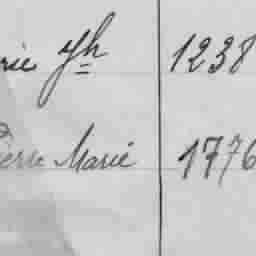 rie Yh 1238
Pierre Marie 1776